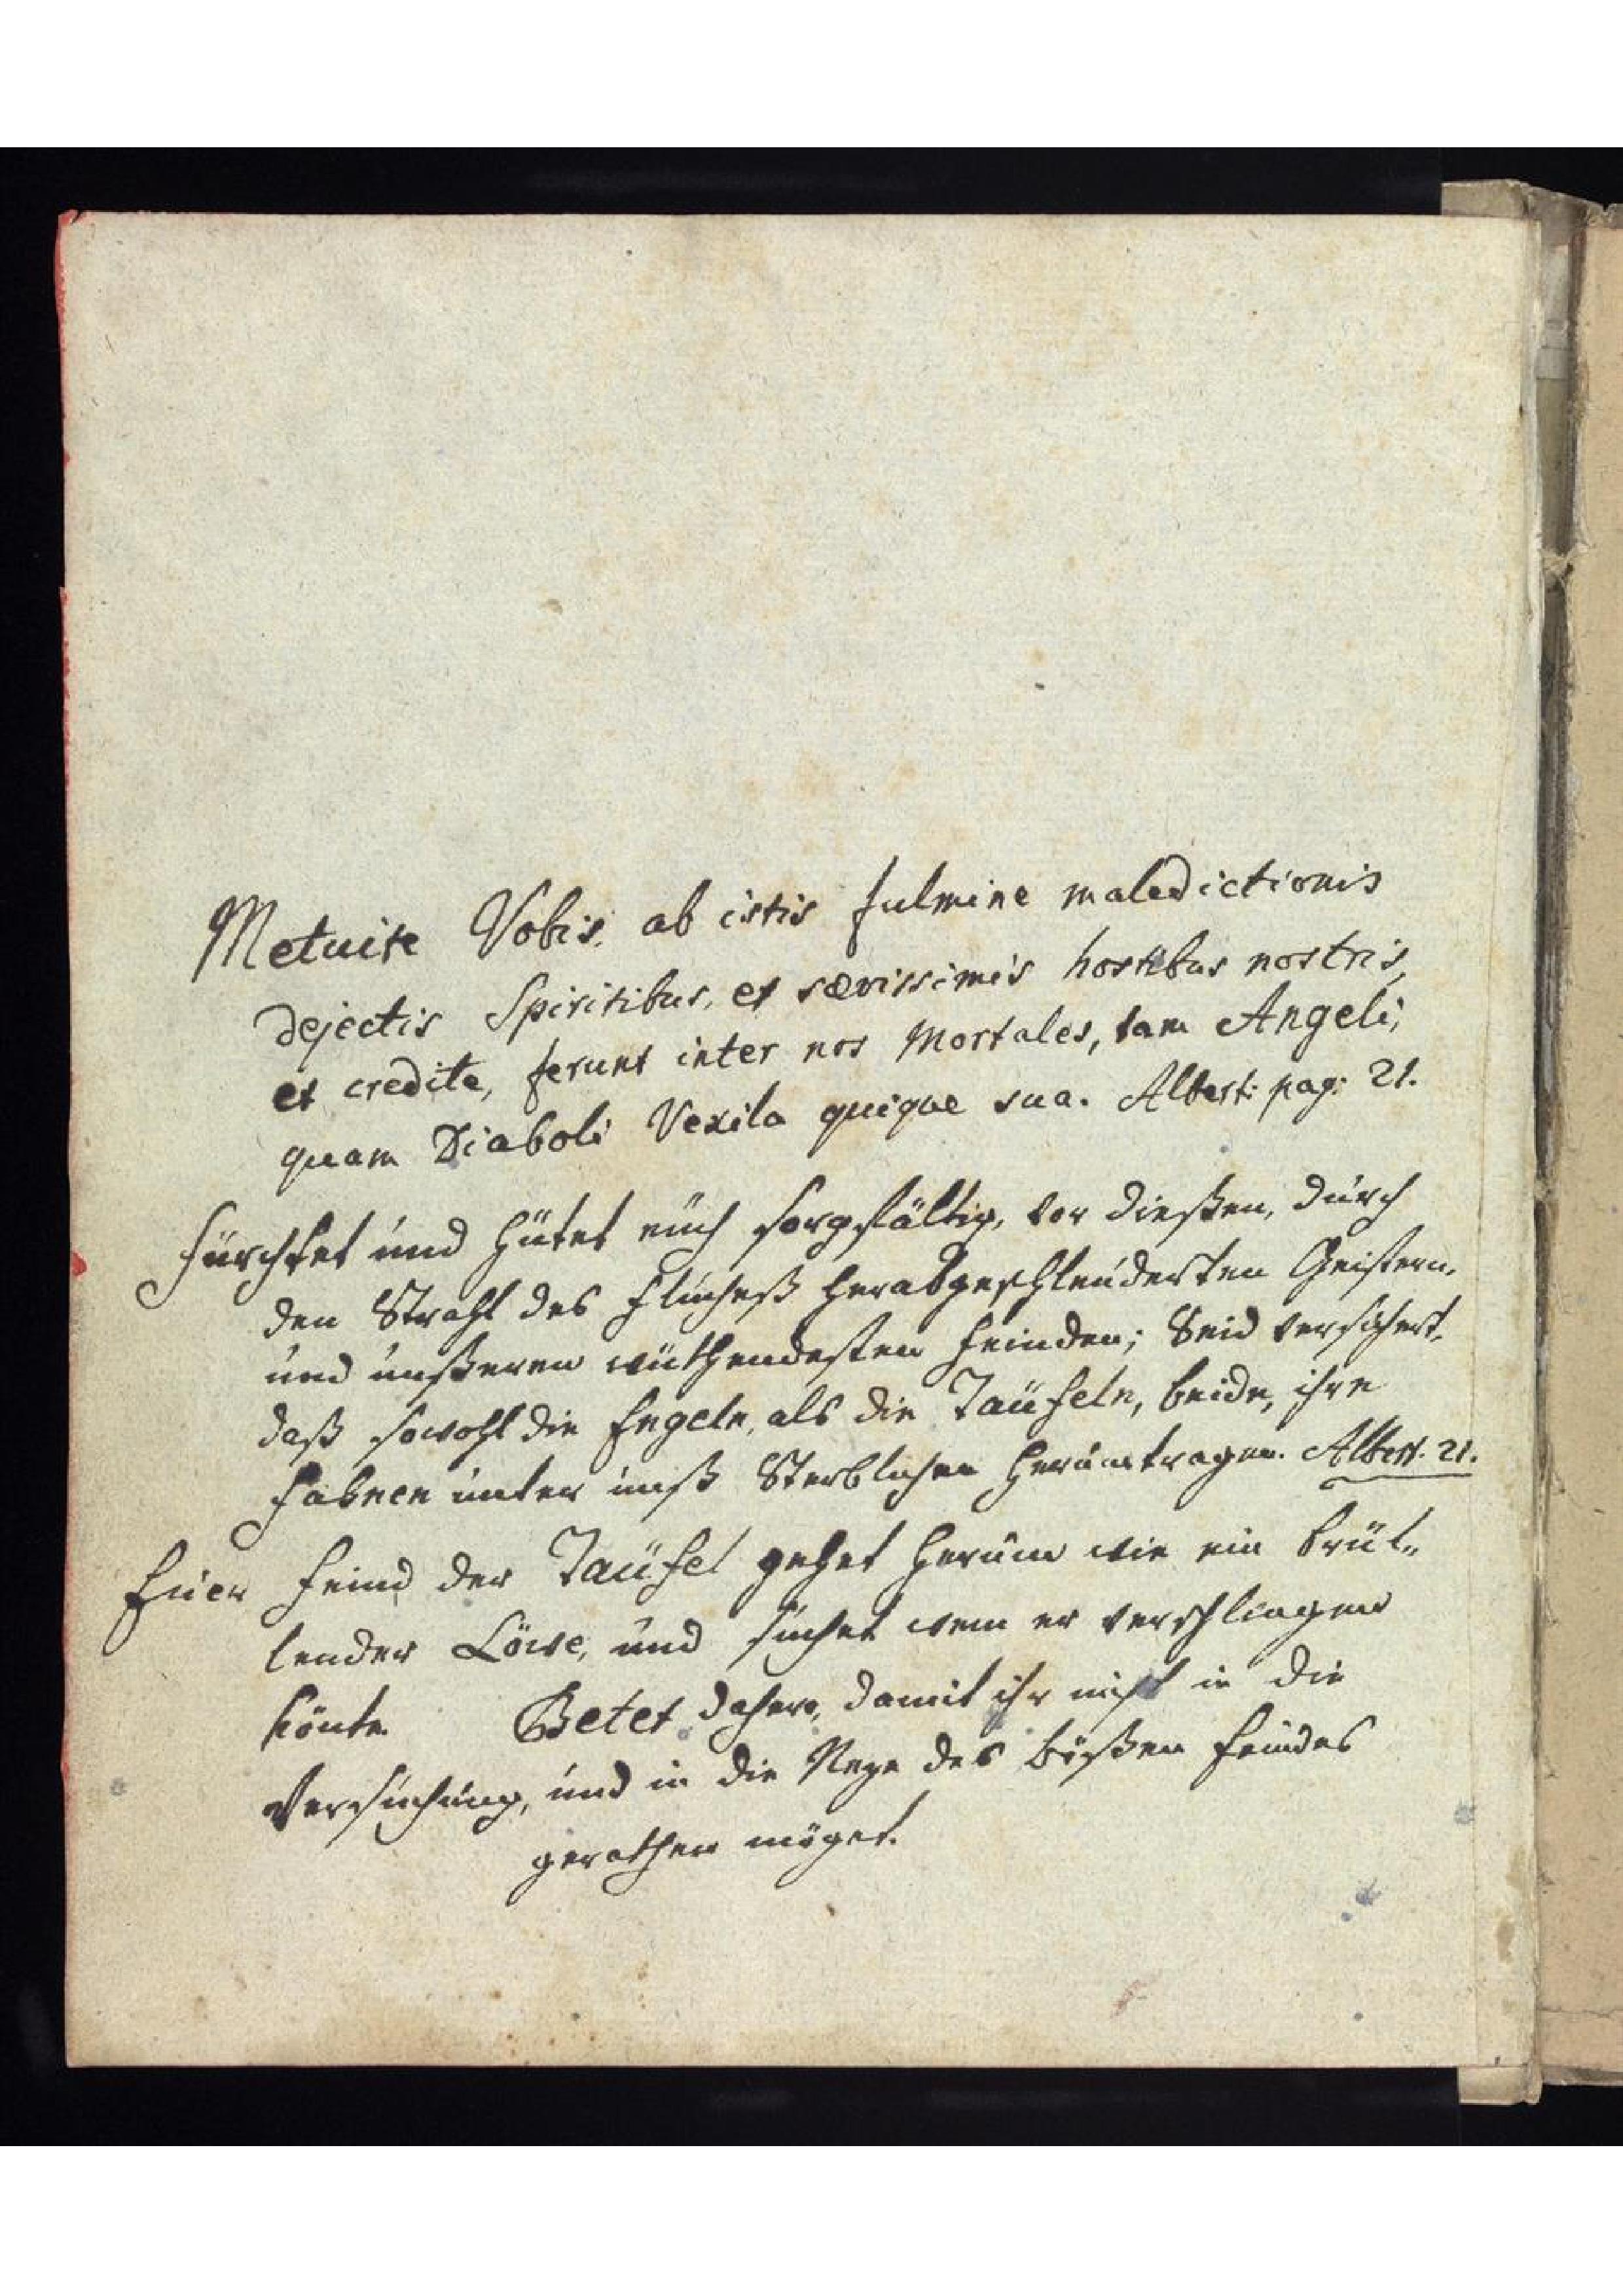 Metuite Vobis, ab istis fulmine maledictionis
dejectis Spiritibus, et sævissimis hostibus nostris,
et credite, ferunt inter nos Mortales, tam Angeli,
quam Diaboli Vexila quique sua. Albert: pag: 21.
Fürchtet und hütet euch sorgfältig, vor dießen, durch
den Strahl des Flucheß herabgeschleuderten Geistern,
und unßeren wüthendesten Feinden; Seid versichert,
daß sowohl die Engeln, als die Taüfeln, beide, ihre
Fahnen unter unß Sterblichen herumtragen. Albert. 21.
Euer Feind der Taüfel gehet herum wie ein brül„
lender Löwe, und suchet wem er verschlingen
könte. Betet daher, damit ihr nicht in die
Versuchung, und in die Neze des bößen Feindes
gerathen möget.